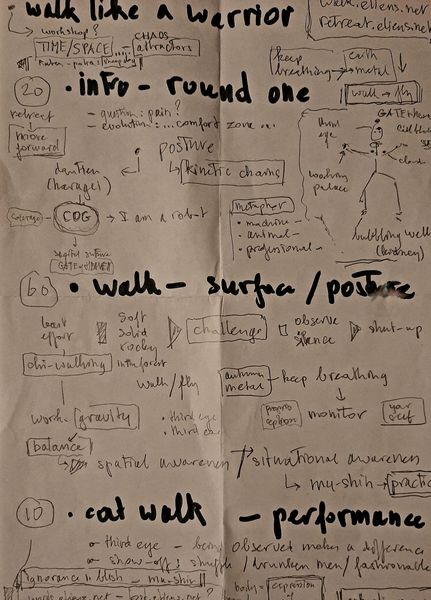 walk like a warrior
workshop?
TIME/SPACE
CHAOS
attractors
walk.eliens.net
retreat.eliens.net
keep breathing
earth
metal
walk - fly
20
• info - round one
retreat
move forward
- question: pain?
- evolution: ... comfort zone ...
posture
kinetic chains
dantien
(haragei)
COG → I am a robot
metaphor
• machine -
• animal -
• professional -
third eye
bubbling well
(kidney)
60
• walk - surface / posture
least effort
soft
solid
rocky
challenge
observe
silence
shut-up
chi-walking
in the forest
walk/fly
autumn
metal
- keep breathing
work - gravity
• third eye
• third ear
monitor
your self
balance
spatial awareness
situational awareness
mu-shin → practice
10
• cat walk - performance
third eye - being observed makes a difference
show-off: shuffle / drunken men / fashionable
ignorance is blish - mu-shin
body =
expression